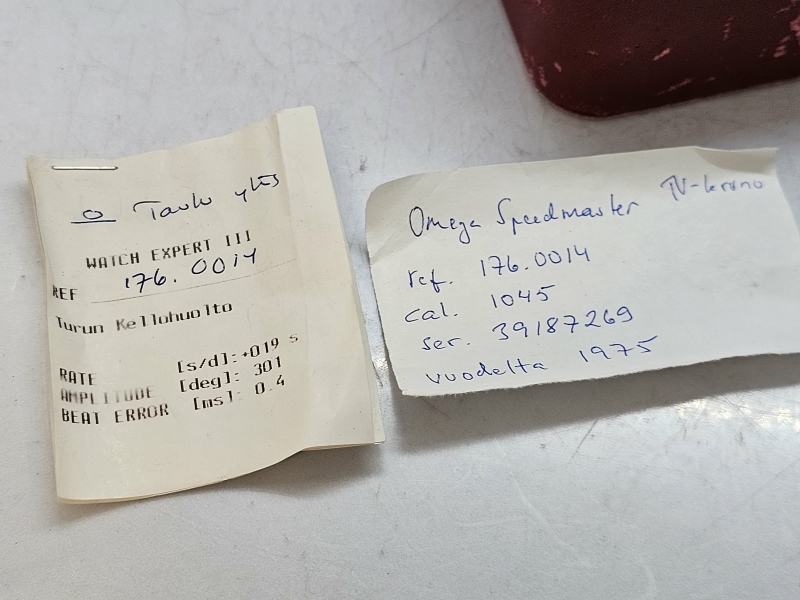 O Taulu ylös
WATCH EXPERT III
REF 176.0014
Turun Kellohuolto
RATE [s/d]:+019 s
AMPLITUDE [deg]: 301
BEAT ERROR [ms]: 0.4
Omega Speedmaster TV-krono
ref. 176.0014
cal. 1045
ser. 39187269
vuodelta 1975